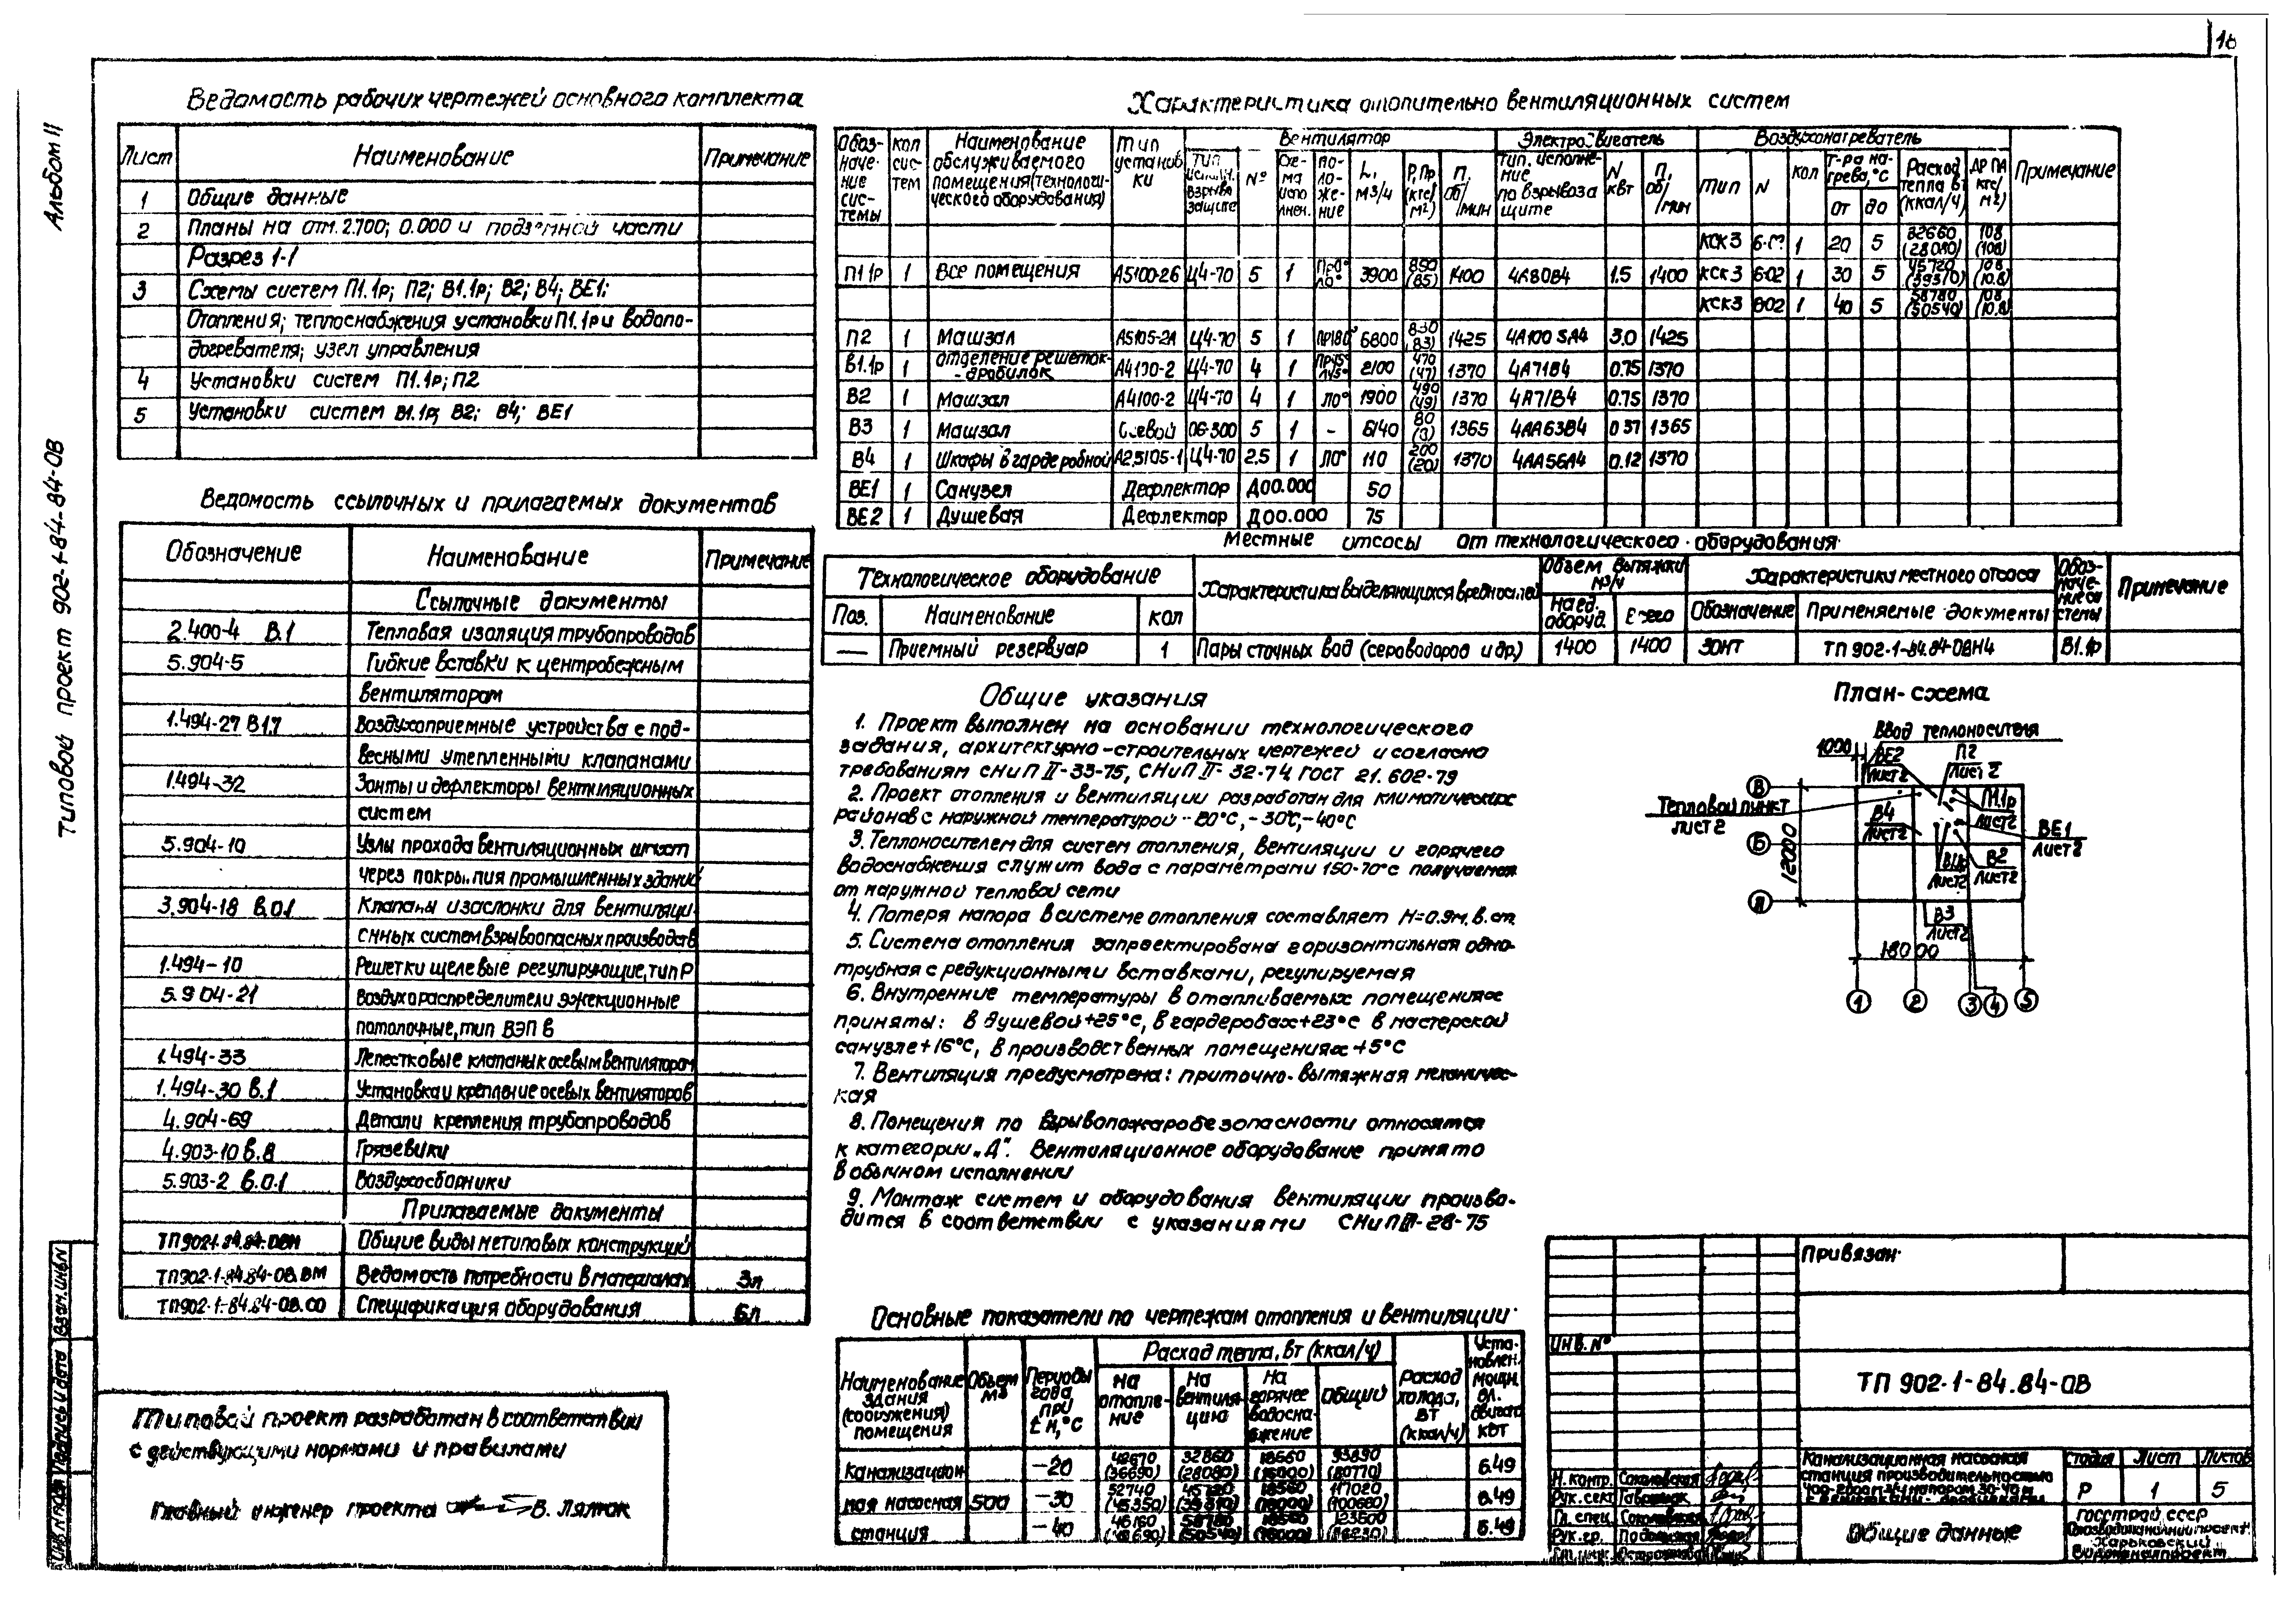 16
Альбом II
Типовой проект 902-1-84.84-ОВ
Ведомость рабочих чертежей основного комплекта
Лист Наименование Примечание
1 Общие данные
2 Планы на отм. 2.700; 0.000 и подземной части
Разрез 1-1
3 Схемы систем П1.1р; П2; В1.1р; В2; В4; ВЕ1;
Отопления; теплоснабжения установки П1.1р и водопо-
догревателя; узел управления
4 Установки систем П1.1р; П2
5 Установки систем В1.1р; В2; В4; ВЕ1
Ведомость ссылочных и прилагаемых документов
Обозначение Наименование Примечание
Ссылочные документы
2.400-4 В.1 Тепловая изоляция трубопроводов
5.904-5 Гибкие вставки к центробежным
вентиляторам
1.494-27 В1.7 Воздухоприемные устройства с под-
весными утепленными клапанами
1.494-32 Зонты и дефлекторы вентиляционных
систем
5.904-10 Узлы прохода вентиляционных шахт
через покрытия промышленных зданий
3.904-18 в.0.1 Клапаны и заслонки для вентиляци-
онных систем взрывоопасных производств
1.494-10 Решетки щелевые регулирующие, тип Р
5.904-21 Воздухораспределители эжекционные
потолочные, тип ВЭП в
1.494-33 Лепестковые клапаны к осевым вентиляторам
1.494-30 в.1 Установка и крепление осевых вентиляторов
4.904-69 Детали крепления трубопроводов
4.903-10 в.8 Грязевики
5.903-2 в.0.1 Воздухосборники
Прилагаемые документы
ТП902-1-84.84-ОВН Общие виды нетиповых конструкций
ТП902-1-84.84-ОВ.ВМ Ведомость потребности в материалах 3л
ТП902-1-84.84-ОВ.СО Спецификация оборудования 6л
Типовой проект разработан в соответствии
с действующими нормами и правилами
Главный инженер проекта В. Ляток
Характеристика отопительно вентиляционных систем
Обоз-начение сис-темы кол сис-тем Наименование обслуживаемого помещения (технологи-ческого оборудования) Тип установ ки Вентилятор Электродвигатель Воздухонагреватель Примечание
тип исполн. взрыво защите № Схе-ма испо лнен. по-ло-же-ние L, м3/ч Р, Пр (кгс/м2) п. об/мин Тип. исполне-ние по взрывоза щите N квт п, об/мин Тип N кол Т-ра на-грева, °С от до Расход тепла Вт (ккал/ч) ΔР ПА кгс/м2)
КСК3 1 20 5 32660 (28080) 108 (108)
П1.1р 1 Все помещения А5100-2б Ц4-70 5 1 3900 (85) 1400 4А80В4 1.5 1400 КСК3 6-02 1 30 5 45720 (39310) 10.8 (10.8)
КСК3 802 1 40 5 58780 (50540) 108 (10.8)
П2 1 Машзал А5105-2А Ц4-70 5 1 Пр180° 6800 830 (83) 1425 4А100 SА4 3.0 1425
В1.1р 1 отделение решеток--дробилок А4100-2 Ц4-70 4 1 Пр45° Л45° 2100 470 (47) 1370 4А71В4 0.75 1370
В2 1 Машзал А4100-2 Ц4-70 4 1 Л0° 1900 490 (49) 1370 4А71В4 0.75 1370
В3 1 Машзал Осевой 06-300 5 1 - 6140 80 1365 4АА63В4 0.37 1365
В4 1 Шкафы в гардеробной А2,5105-1 Ц4-70 2.5 1 Л0° 110 200 (20) 1370 4АА56А4 0.12 1370
ВЕ1 1 Санузел Дефлектор Д00.000 50
ВЕ2 1 Душевая Дефлектор Д00.000 75
Местные отсосы от технологического оборудования
Технологическое оборудование Характеристика выделяющихся вредностей Объем вытяжки м3/ч Характеристика местного отсоса Обоз-наче-ние си стемы Примечание
Поз. Наименование кол На ед. оборуд. Всего Обозначение Применяемые документы
— Приемный резервуар 1 Пары сточных вод (сероводород и др.) 1400 1400 ЗОНТ ТП 902-1-84.84-ОВН4 В1.1р
Общие указания
1. Проект выполнен на основании технологического
задания, архитектурно-строительных чертежей и согласно
требованиям СНиП II-33-75, СНиП II-32-74 ГОСТ 21.602-79
2. Проект отопления и вентиляции разработан для климатических
районов с наружной температурой -20°С, -30°С, -40°С
3. Теплоносителем для систем отопления, вентиляции и горячего
водоснабжения служит вода с параметрами 150-70°С получаемая
от наружной тепловой сети
4. Потеря напора в системе отопления составляет Н=0.9м. в. ст.
5. Система отопления запроектирована горизонтальная одно-
трубная с редукционными вставками, регулируемая
6. Внутренние температуры в отапливаемых помещениях
приняты: в душевой +25°С, в гардеробах +23°С в мастерской
санузле +16°С, в производственных помещениях +5°С
7. Вентиляция предусмотрена: приточно-вытяжная механичес-
кая
8. Помещения по взрывопожаробезопасности относятся
к категории „Д". Вентиляционное оборудование принято
в обычном исполнении
9. Монтаж систем и оборудования вентиляции произво-
дится в соответствии с указаниями СНиП III-28-75
План-схема
Ввод теплоносителя
1000 ВЕ2 Лист 2 П2 Лист 2
Тепловой пункт лист 2 В4 Лист 2 П1.1р Лист 2 ВЕ1 Лист 2
В1.1р Лист 2 В2 Лист 2
В3 Лист 2
12000
18000
В Б А
1 2 3 4 5
Основные показатели по чертежам отопления и вентиляции
Наименование здания (сооружения) помещения Объем м3 Периоды года при tн, °С Расход тепла, вт (ккал/ч) Расход холода, вт (ккал/ч) Уста-новлен. мощн. эл. двигат. квт
на отопле-ние На вентиля-цию На горячее водосна-бжение Общий
Канализацион -20 (36690) 32660 (28080) 18560 (16000) 93890 (80770) 6.49
ная насосная 500 -30 52740 (45350) 45720 (39310) 18560 (16000) 117020 (100680) 6.49
станция -40 58780 (50540) 18560 (16000) 6.49
Привязан
Инв. №
ТП 902-1-84.84-ОВ
Канализационная насосная
станция производительностью
400-2000 м3/ч напором 30-40 м
с решетками-дробилками
Стадия Лист Листов
Р 1 5
Общие данные
Госстрой СССР
Союзводоканалниипроект
Харьковский
Водоканалпроект
Н. контр. Соколовская
Рук. сект.
Гл. спец. Соколовская
Рук. гр. Подольская
Инв. № подл Подпись и дата Взам. инв. №